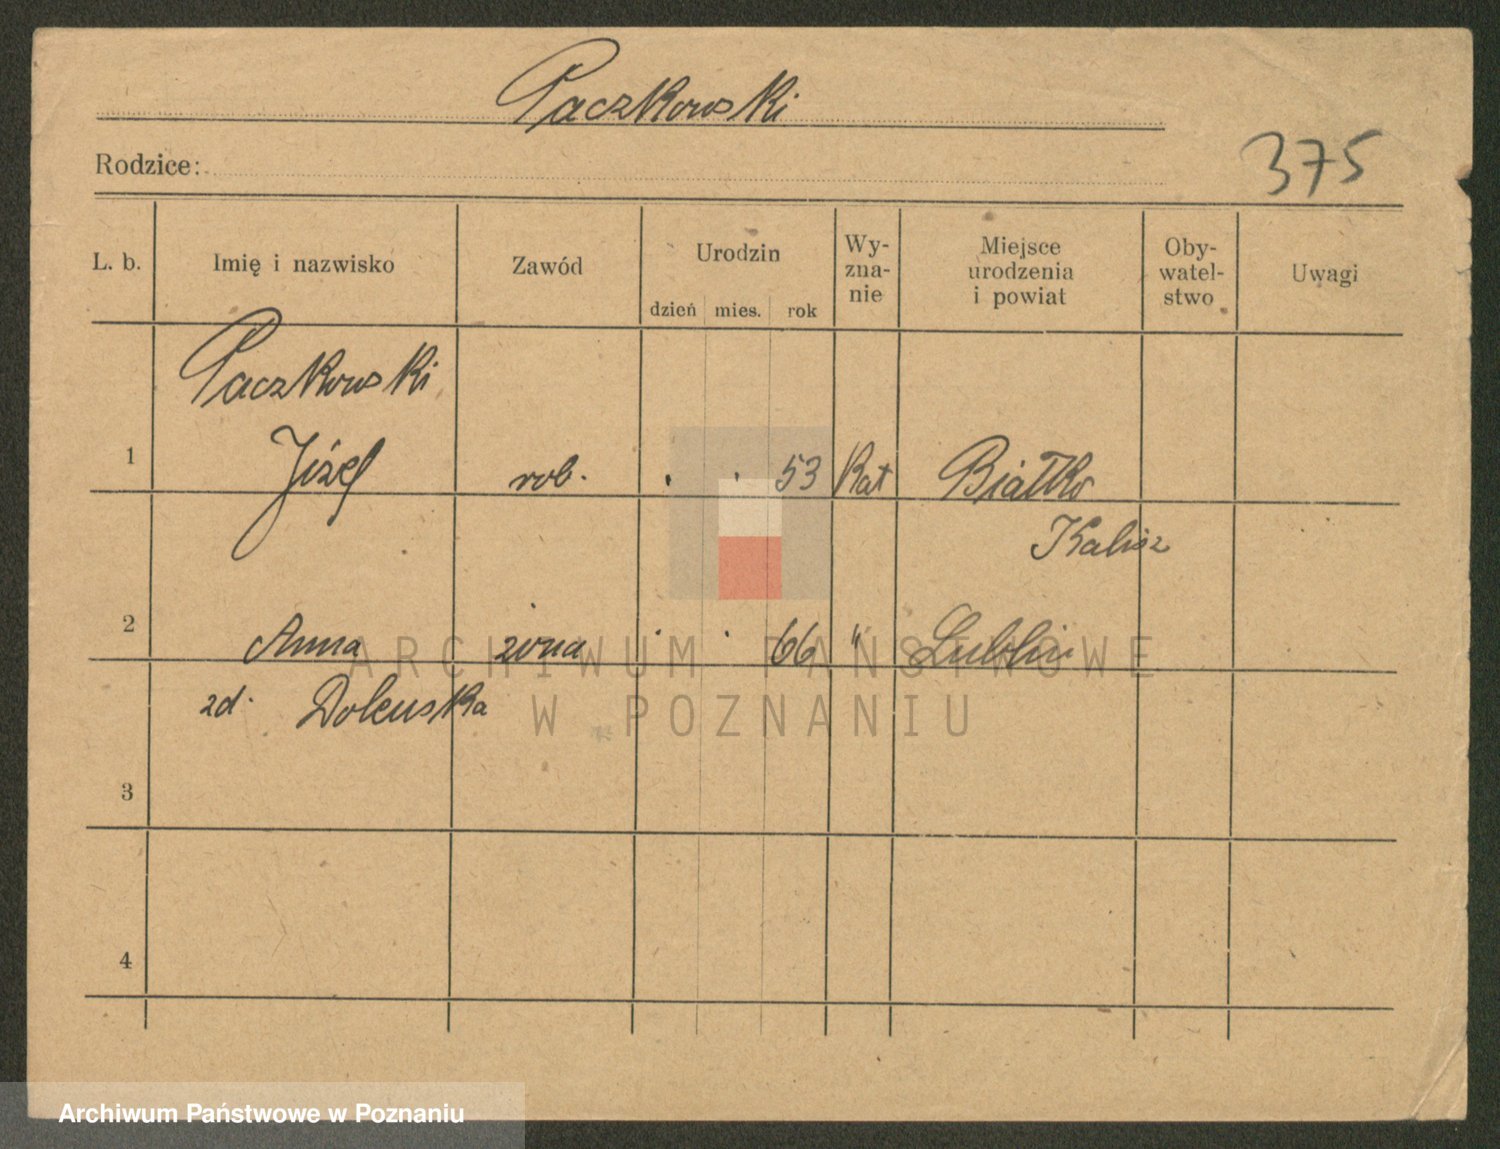 Paczkowski
Rodzice:
375
L. b. Imię i nazwisko Zawód Urodzin Wy-zna-nie Miejsce urodzenia i powiat Oby-watel-stwo Uwagi
dzień mies. rok
Paczkowski
1 Józef rob. . . 53 Kat Białko
Kalisz
2 Anna żona . . 66 " Lublin
zd. Dolenska
3
4
ARCHIWUM PAŃSTWOWE
W POZNANIU
Archiwum Państwowe w Poznaniu